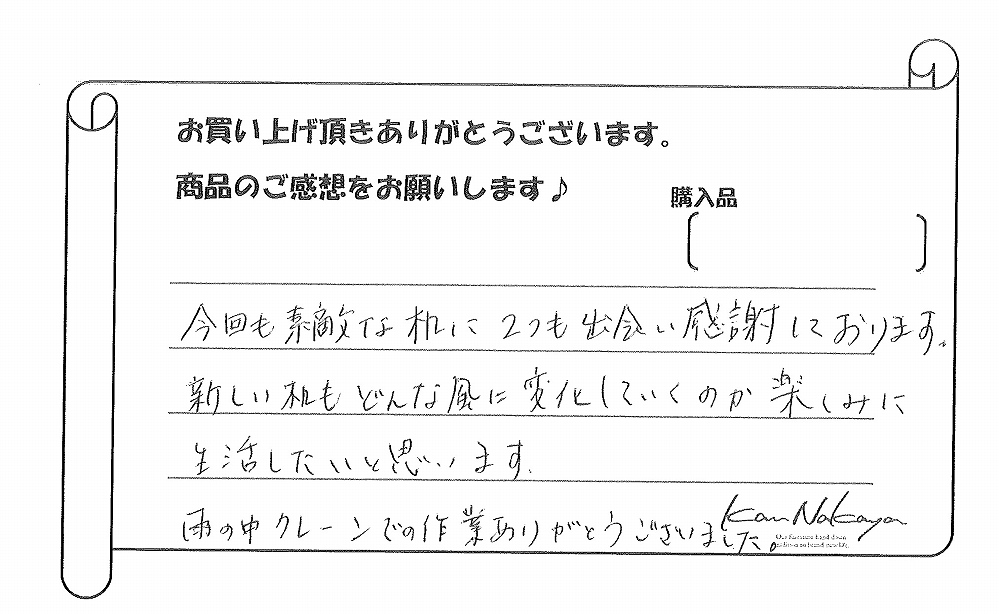 お買い上げ頂きありがとうございます。
商品のご感想をお願いします♪
購入品
今回も素敵な机に2つも出会い感謝しております。
新しい机もどんな風に変化していくのか楽しみに
生活したいと思います.
雨の中クレーンでの作業ありがとうございました。
Kan Nakaya